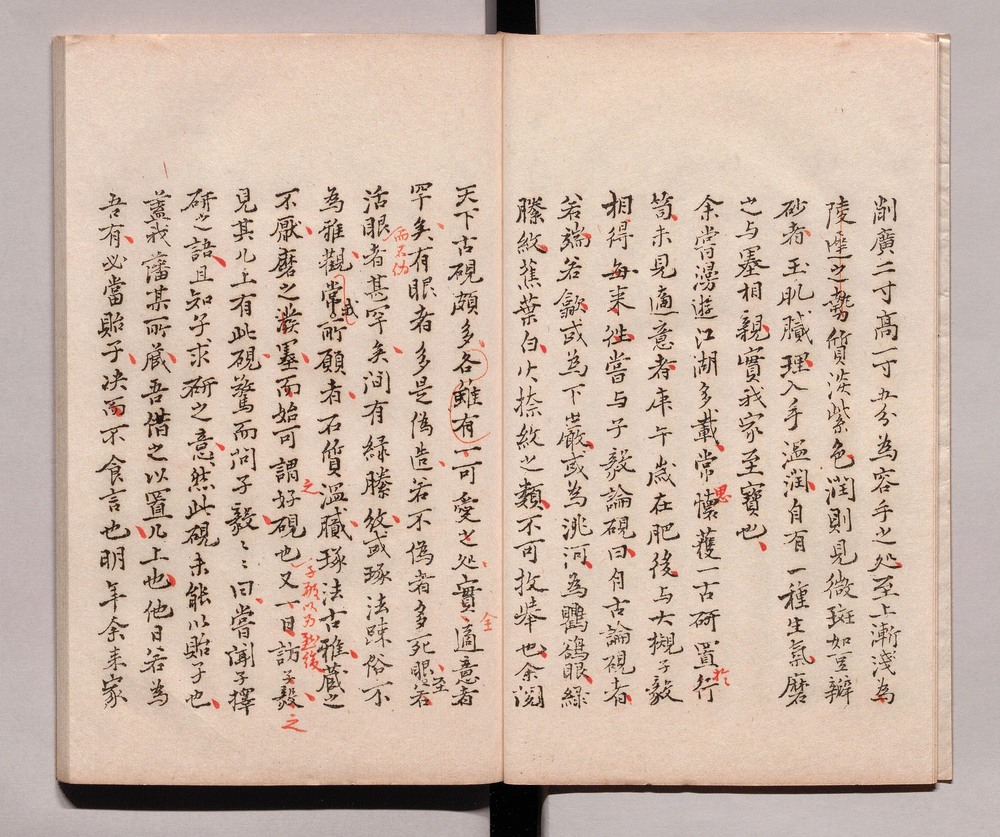 削廣二寸高一寸五分為容手之処至上漸淺為
陵遲之勢質淡紫色潤則見微斑如豆瓣
砂者玉肌膩理入手溫潤自有一種生氣磨
之与墨相親實我家至寶也
余嘗漫遊江湖多載常思懷獲一古研置於行
笥未見適意者庚午歲在肥後与大槻子毅
相得每来往嘗与子毅論硯曰自古論硯者
若端若歙或為下巖或為洮河為鸜鵒眼綠
縢紋蕉葉白火捺紋之類不可枚舉也余閲
天下古硯頗多各雖有一可愛之処實全適意者
罕矣有眼者多是偽造若不偽者多死眼至若
活眼者甚罕矣間有綠縢紋或琢法疎俗不
為雅觀常所願者石質溫膩琢法古雅蔵之
不厭磨之潑墨而始可謂之好硯也又一日訪子毅
見其几上有此硯驚而問子毅〻曰嘗聞子擇
研之語且知子求研之意然此硯未能以貽子也
蓋我藩某所蔵吾借之以置几上也他日若為
吾有必當貽子決而不食言也明年余来家